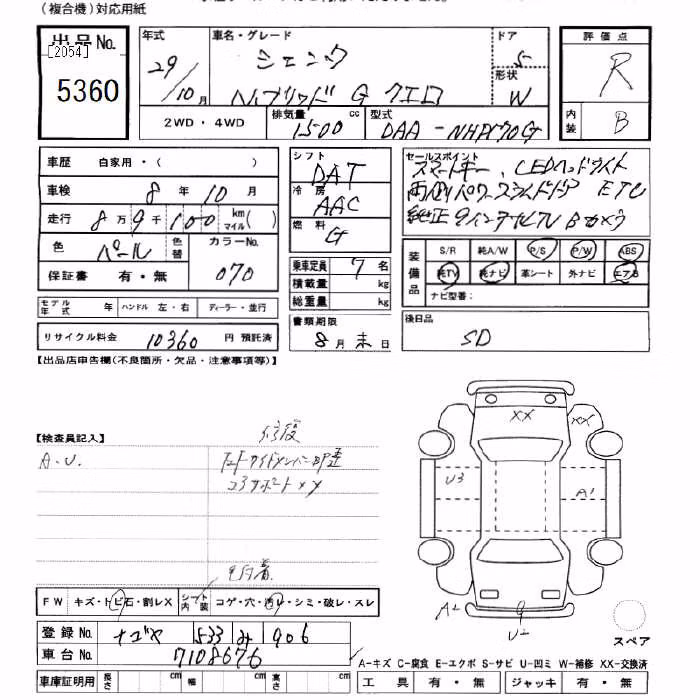 (複合機)対応用紙
出品No.
[2054]
5360
年式
29/10月
車名・グレード
シエンタ
ハイブリッド G クエロ
ドア
5
形状
W
2WD・4WD
排気量
1500 cc
型式
DAA-NHP170G
評価点
R
内装
B
車歴 自家用・( )
車検 8年10月
走行 8万9千100 km マイル( )
色 パール 色替
カラーNo.
070
保証書 有・無
シフト
DAT
冷房
AAC
燃料
G
セールスポイント
スマートキー、LEDヘッドライト
両側パワースライドドア ETC
純正9インチナビTV Bカメラ
乗車定員 7名
積載量 kg
総重量 kg
装備品
S/R 純A/W P/S P/W ABS
純TV 純ナビ 革シート 外ナビ エアB
ナビ型番:
モデル年式 年 ハンドル 左・右 ディーラー・並行
リサイクル料金 10360 円 預託済
書類期限
8月末日
後日品
SD
【出品店申告欄(不良箇所・欠品・注意事項等)】
【検査員記入】
修復
A.U.
コアサポートXX
XX
XX
U3
A1
A2
U2
FW キズ・トビ石・割レX
シート内装 コゲ・穴・汚レ・シミ・破レ・スレ
登録No. ナゴヤ 533 み 906
車台No. 7108676
スペア
A-キズ C-腐食 E-エクボ S-サビ U-凹ミ W-補修 XX-交換済
車庫証明用 長さ cm 幅 cm 高さ cm
工具 有・無 ジャッキ 有・無